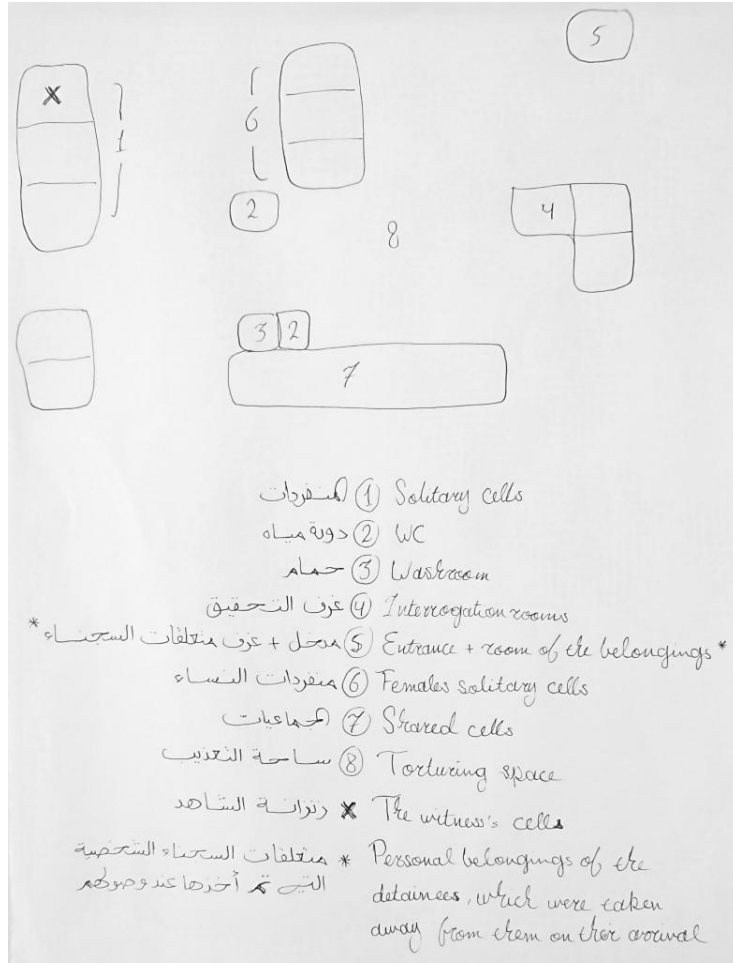 5
X
1
6
2
4
8
3 2
7
المنفردات ① Solitary cells
دورة مياه ② WC
حمام ③ Washroom
غرف التحقيق ④ Interrogation rooms
* مدخل + غرف متعلقات السجناء ⑤ Entrance + room of the belongings *
منفردات النساء ⑥ Females solitary cells
الجماعيات ⑦ Shared cells
ساحة التعذيب ⑧ Torturing space
زنزانة الشاهد X The witness's cells
متعلقات السجناء الشخصية * Personal belongings of the
التي تم أخذها عند وصولهم detainees, which were taken
away from them on their arrival